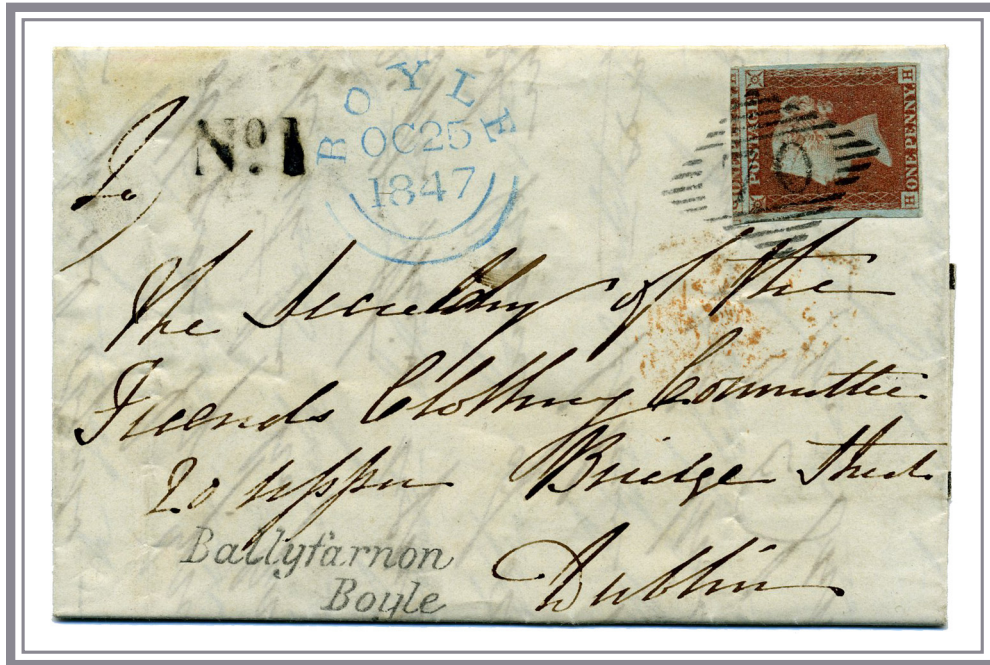 No. 1
BOYLE
OC 25
1847
POSTAGE
ONE PENNY
H H
To
The Secretary of the
Friends Clothing Committee
20 Upper Bridge Street
Dublin
Ballyfarnon
Boyle